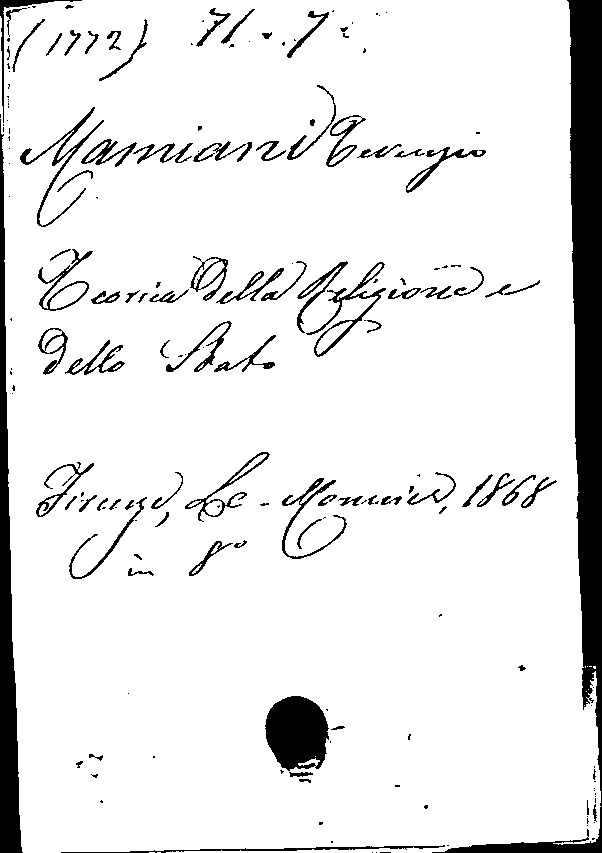 (1772) 71. - 7 -
Mamiani Terenzio
Teorica della Religione e
dello Stato
Firenze, Le-Monnier, 1868
in 8°